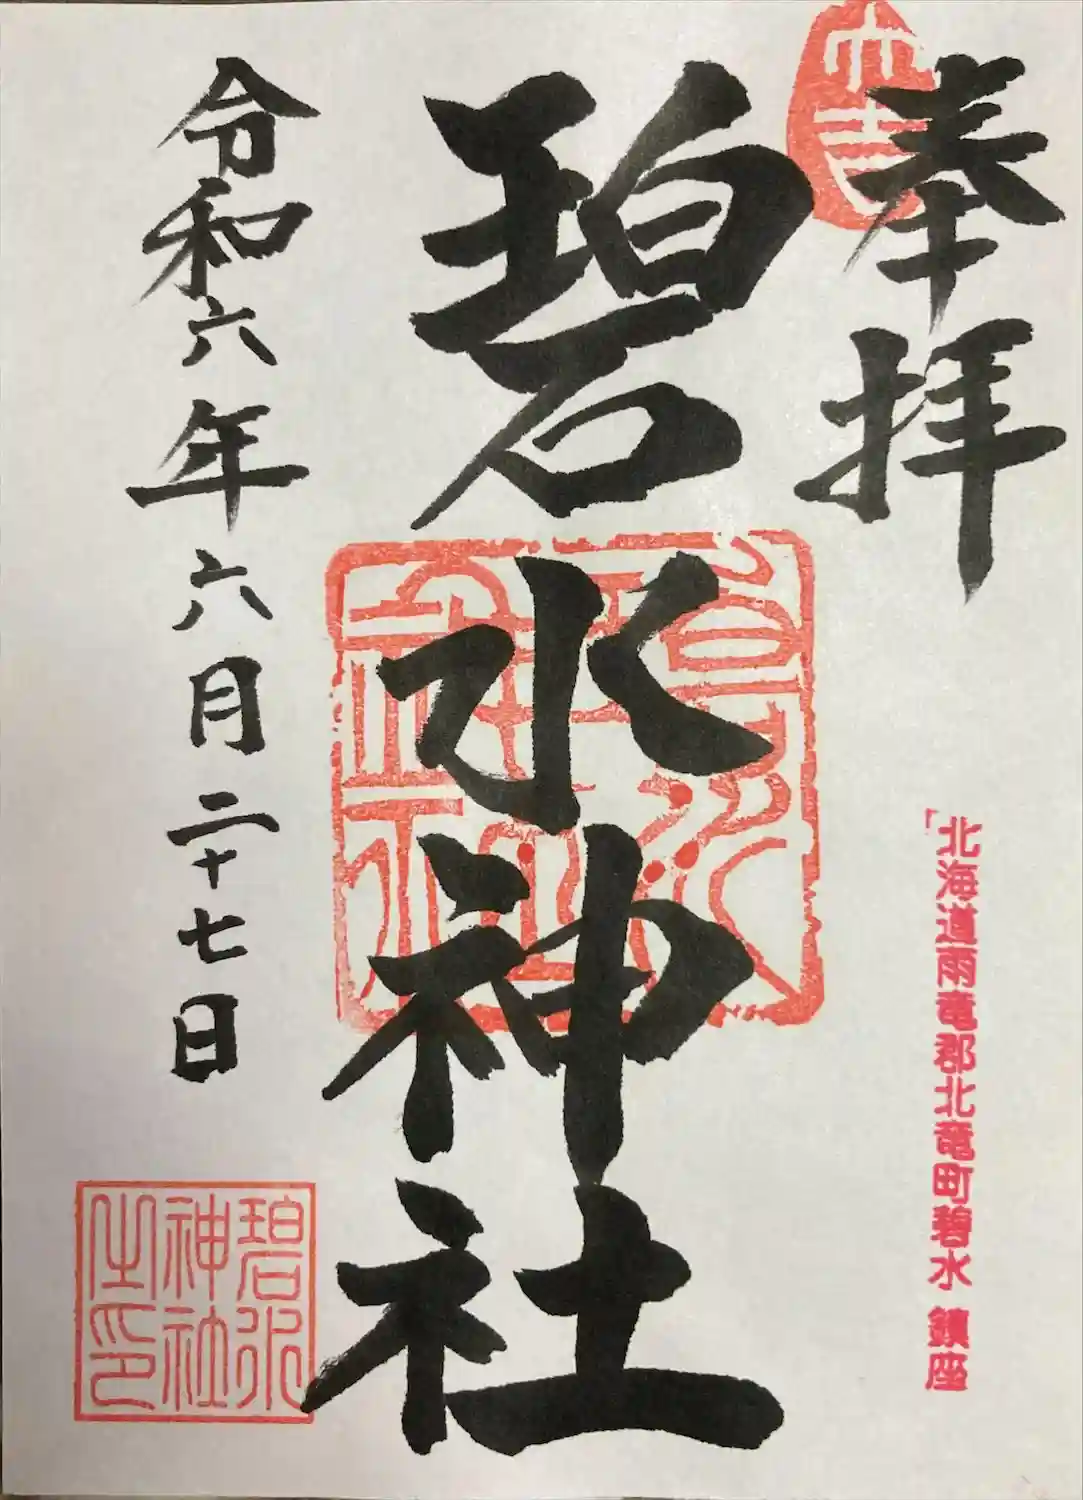 大吉
奉拝
北海道雨竜郡北竜町碧水 鎮座
碧水神社
碧水神社
令和六年六月二十七日
碧水
神社
之印